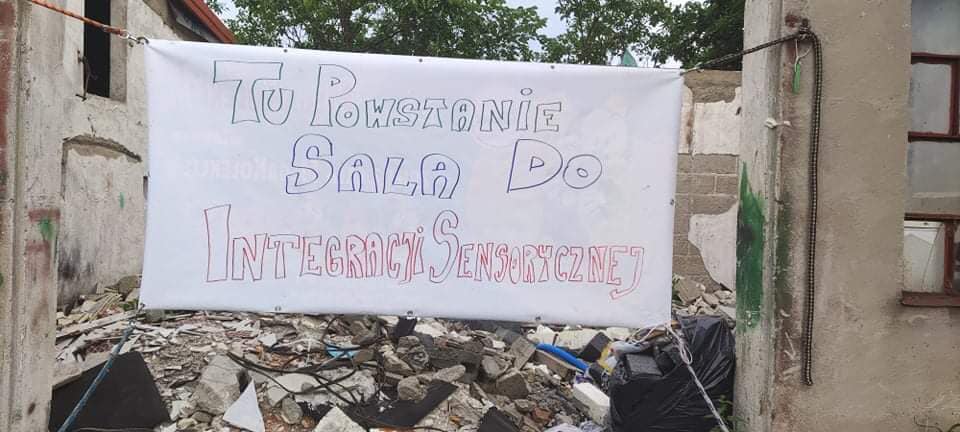 Tu Powstanie
Sala Do
Integracji Sensorycznej